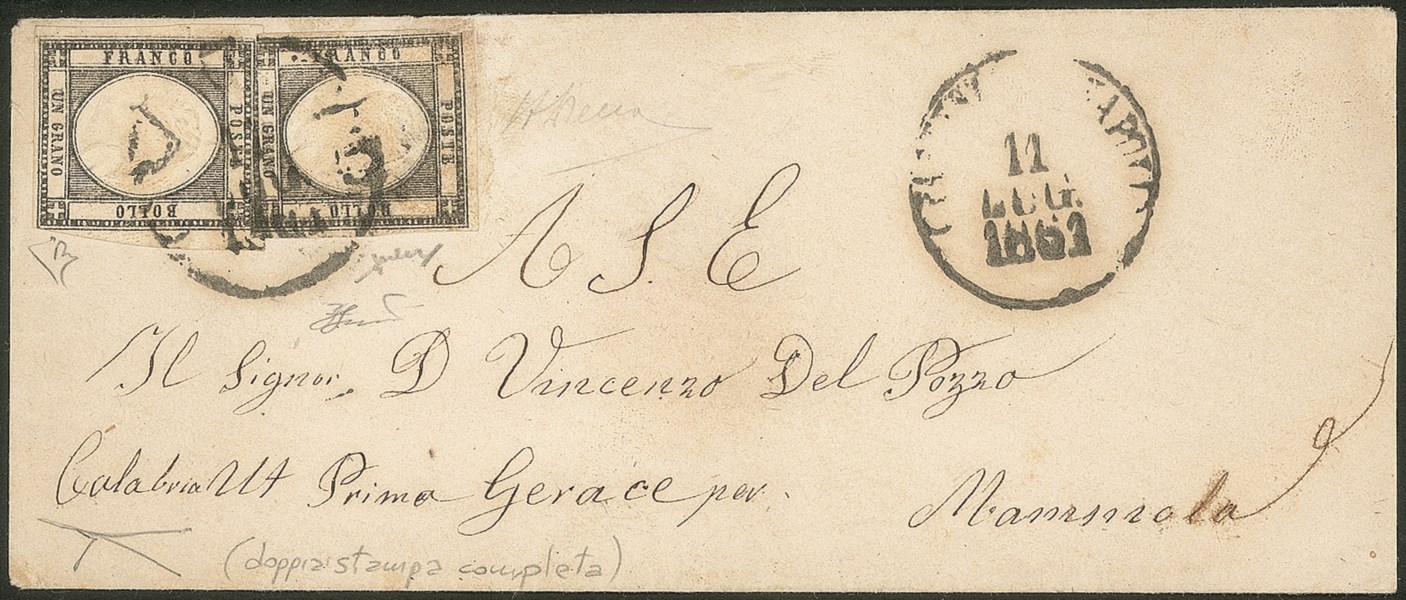 FRANCO
POSTE
BOLLO
UN GRANO
FRANCO
POSTE
BOLLO
UN GRANO
11
LUG.
1861
A S E
Il Signor D Vincenzo Del Pozzo
Calabria Ult Prima Gerace per
Mammola
(doppia stampa completa)